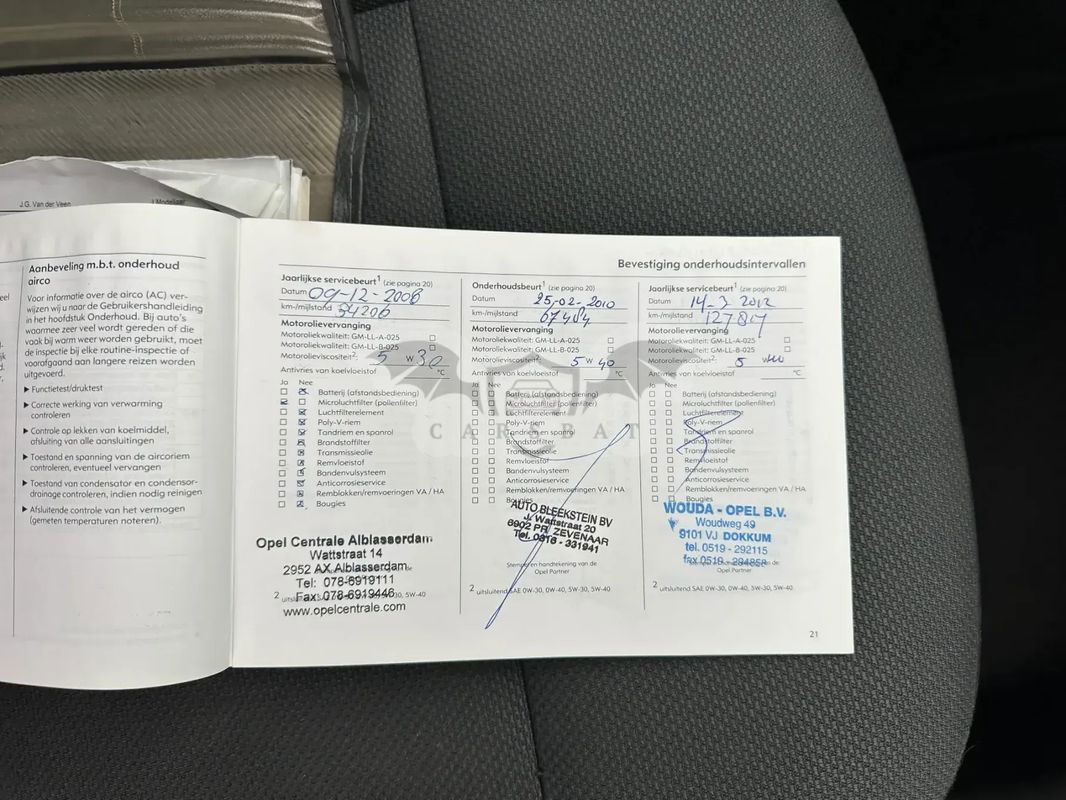 J.G. Van der Veen
Aanbeveling m.b.t. onderhoud
airco
Voor informatie over de airco (AC) ver-
wijzen wij u naar de Gebruikershandleiding
in het hoofdstuk Onderhoud. Bij auto's
waarmee zeer veel wordt gereden of die
vaak bij warm weer worden gebruikt, moet
de inspectie bij elke routine-inspectie of
voorafgaand aan langere reizen worden
uitgevoerd.
▶ Functietest/druktest
▶ Correcte werking van verwarming
controleren
▶ Controle op lekken van koelmiddel,
afsluiting van alle aansluitingen
▶ Toestand en spanning van de aircoriem
controleren, eventueel vervangen
▶ Toestand van condensator en condensor-
drainage controleren, indien nodig reinigen
▶ Afsluitende controle van het vermogen
(gemeten temperaturen noteren).
Bevestiging onderhoudsintervallen
Jaarlijkse servicebeurt1 (zie pagina 20)
Datum 09-12-2008
km-/mijlstand 34206
Motorolievervanging
Motoroliekwaliteit: GM-LL-A-025
Motoroliekwaliteit: GM-LL-B-025
Motorolieviscositeit2: 5 W 30
Antivries van koelvloeistof °C
Ja Nee
Batterij (afstandsbediening)
Microluchtfilter (pollenfilter)
Luchtfilterelement
Poly-V-riem
Tandriem en spanrol
Brandstoffilter
Transmissieolie
Remvloeistof
Bandenvulsysteem
Anticorrosieservice
Remblokken/remvoeringen VA / HA
Bougies
Opel Centrale Alblasserdam
Wattstraat 14
2952 AX Alblasserdam
Tel: 078-6919111
Fax: 078-6919446
www.opelcentrale.com
Onderhoudsbeurt1 (zie pagina 20)
Datum 25-02-2010
km-/mijlstand 67454
Motorolievervanging
Motoroliekwaliteit: GM-LL-A-025
Motoroliekwaliteit: GM-LL-B-025
Motorolieviscositeit2: 5 W 40
Antivries van koelvloeistof °C
Ja Nee
Batterij (afstandsbediening)
Microluchtfilter (pollenfilter)
Luchtfilterelement
Poly-V-riem
Tandriem en spanrol
Brandstoffilter
Transmissieolie
Remvloeistof
Bandenvulsysteem
Anticorrosieservice
Remblokken/remvoeringen VA / HA
Bougies
AUTO BLEEKSTEIN BV
J. Wattstraat 20
6902 PR ZEVENAAR
Tel. 0316 - 331941
Stempel en handtekening van de
Opel Partner
2 uitsluitend SAE 0W-30, 0W-40, 5W-30, 5W-40
Jaarlijkse servicebeurt1 (zie pagina 20)
Datum 14-3 2012
km-/mijlstand
Motorolievervanging
Motoroliekwaliteit: GM-LL-A-025
Motoroliekwaliteit: GM-LL-B-025
Motorolieviscositeit2: 5 W 40
Antivries van koelvloeistof °C
Ja Nee
Batterij (afstandsbediening)
Microluchtfilter (pollenfilter)
Luchtfilterelement
Poly-V-riem
Tandriem en spanrol
Brandstoffilter
Transmissieolie
Remvloeistof
Bandenvulsysteem
Anticorrosieservice
Remblokken/remvoeringen VA / HA
Bougies
WOUDA - OPEL B.V.
Woudweg 49
9101 VJ DOKKUM
tel. 0519 - 292115
fax 0519 - 294858
Opel Partner
2 uitsluitend SAE 0W-30, 0W-40, 5W-30, 5W-40
21
CARSBAT